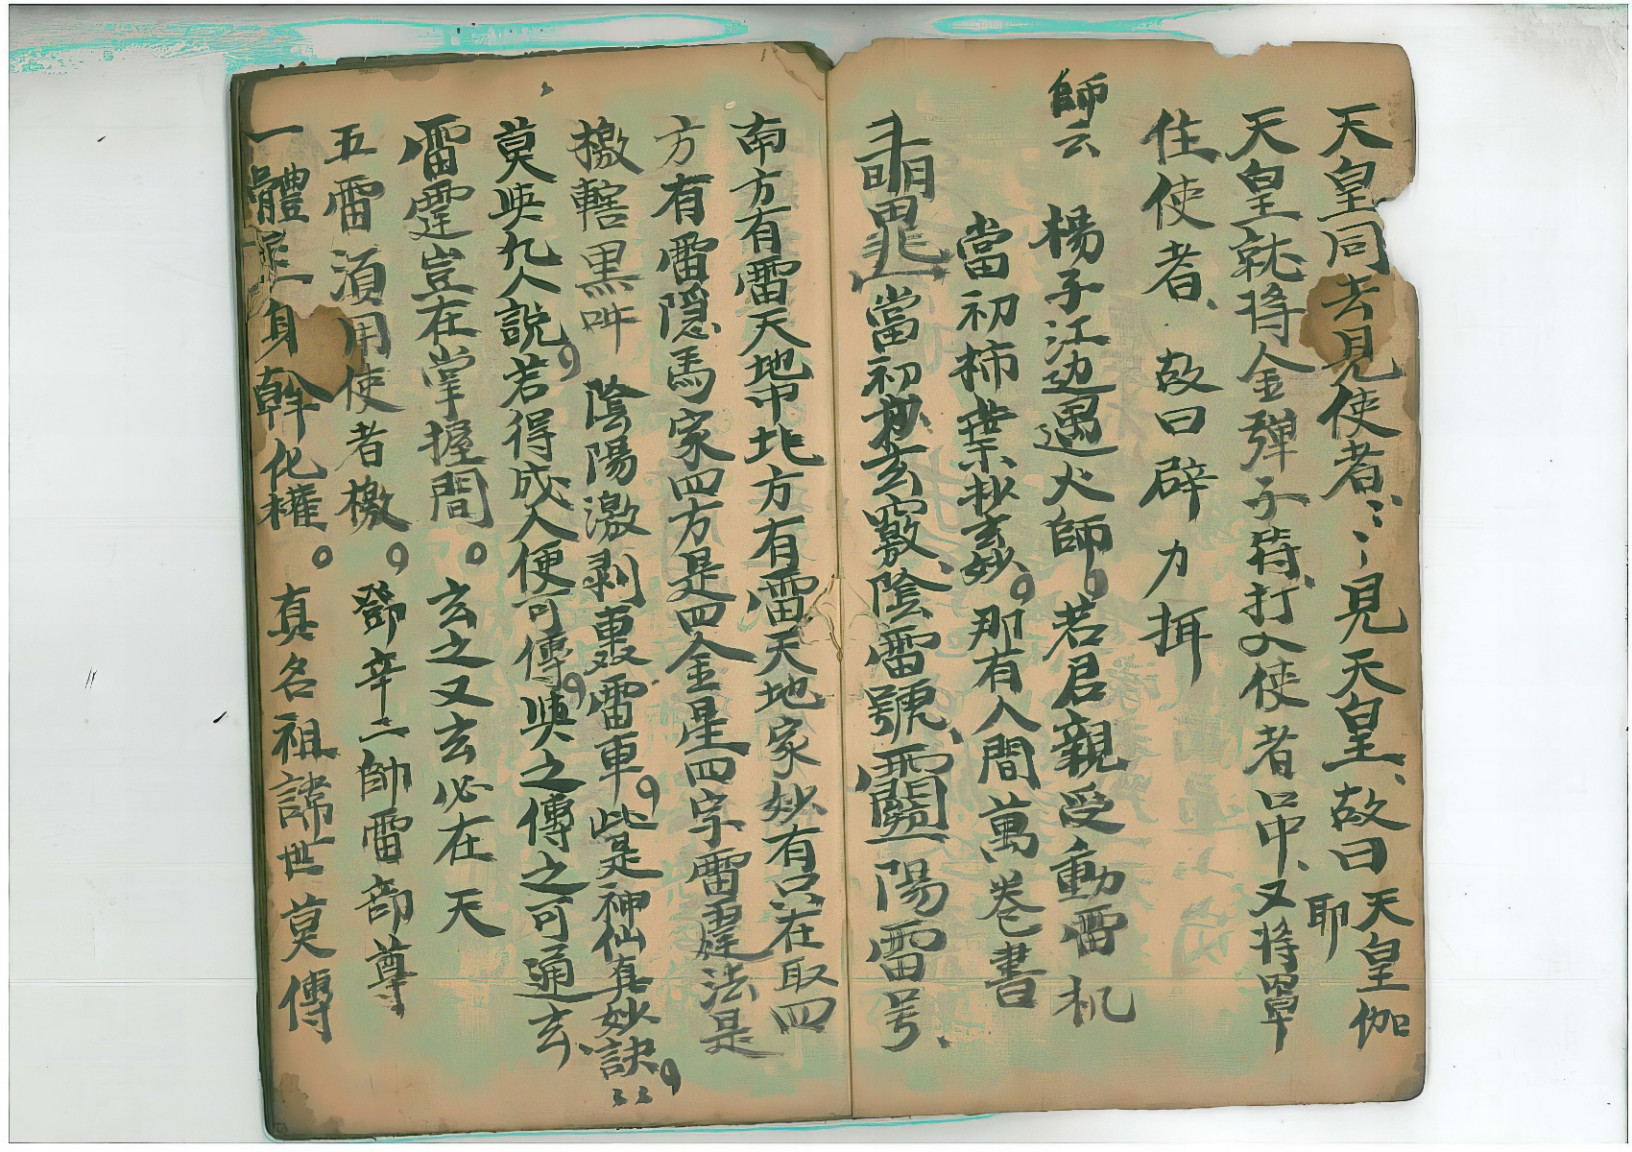 天皇同去見使者〻〻見天皇、故曰天皇伽耶
天皇就将金彈子待打入使者口中、又将罩
住使者、故曰辟力捛
師云 楊子江边遇火師。若君親受動雷机
當初柿葉抄玄妙。那有人間萬卷書
當初玄竅陰雷號、陽雷号、
南方有雷天地中北方有雷天地家妙有只在取四
方有雷隠馬家四方是四金星四字雷霆法是
檄轄黒吽 陰陽激剥轟雷車。此是神仙真妙訣。
莫與九人說。若得成人便可傳。與之傳之可通玄、
雷霆豈在掌握間。玄之又玄必在天
五雷須用使者檄。鄧辛二帥雷部尊
一體 身幹化權。真名祖諱世莫傳